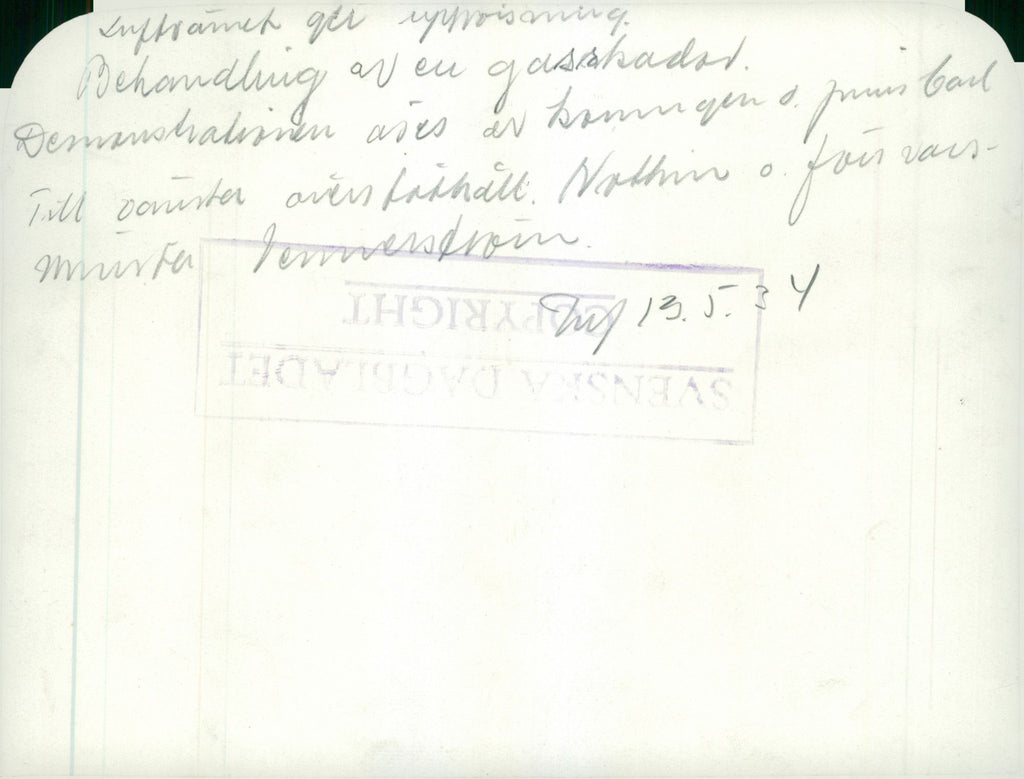 Luftvärnet gör uppvisning.
Behandling av en gasskadad.
Demonstrationen åses av konungen o. prins Carl
Till vänster överståthåll. Nothin o. försvars-
minister Vennerström.
13.5.34
COPYRIGHT
SVENSKA DAGBLADET